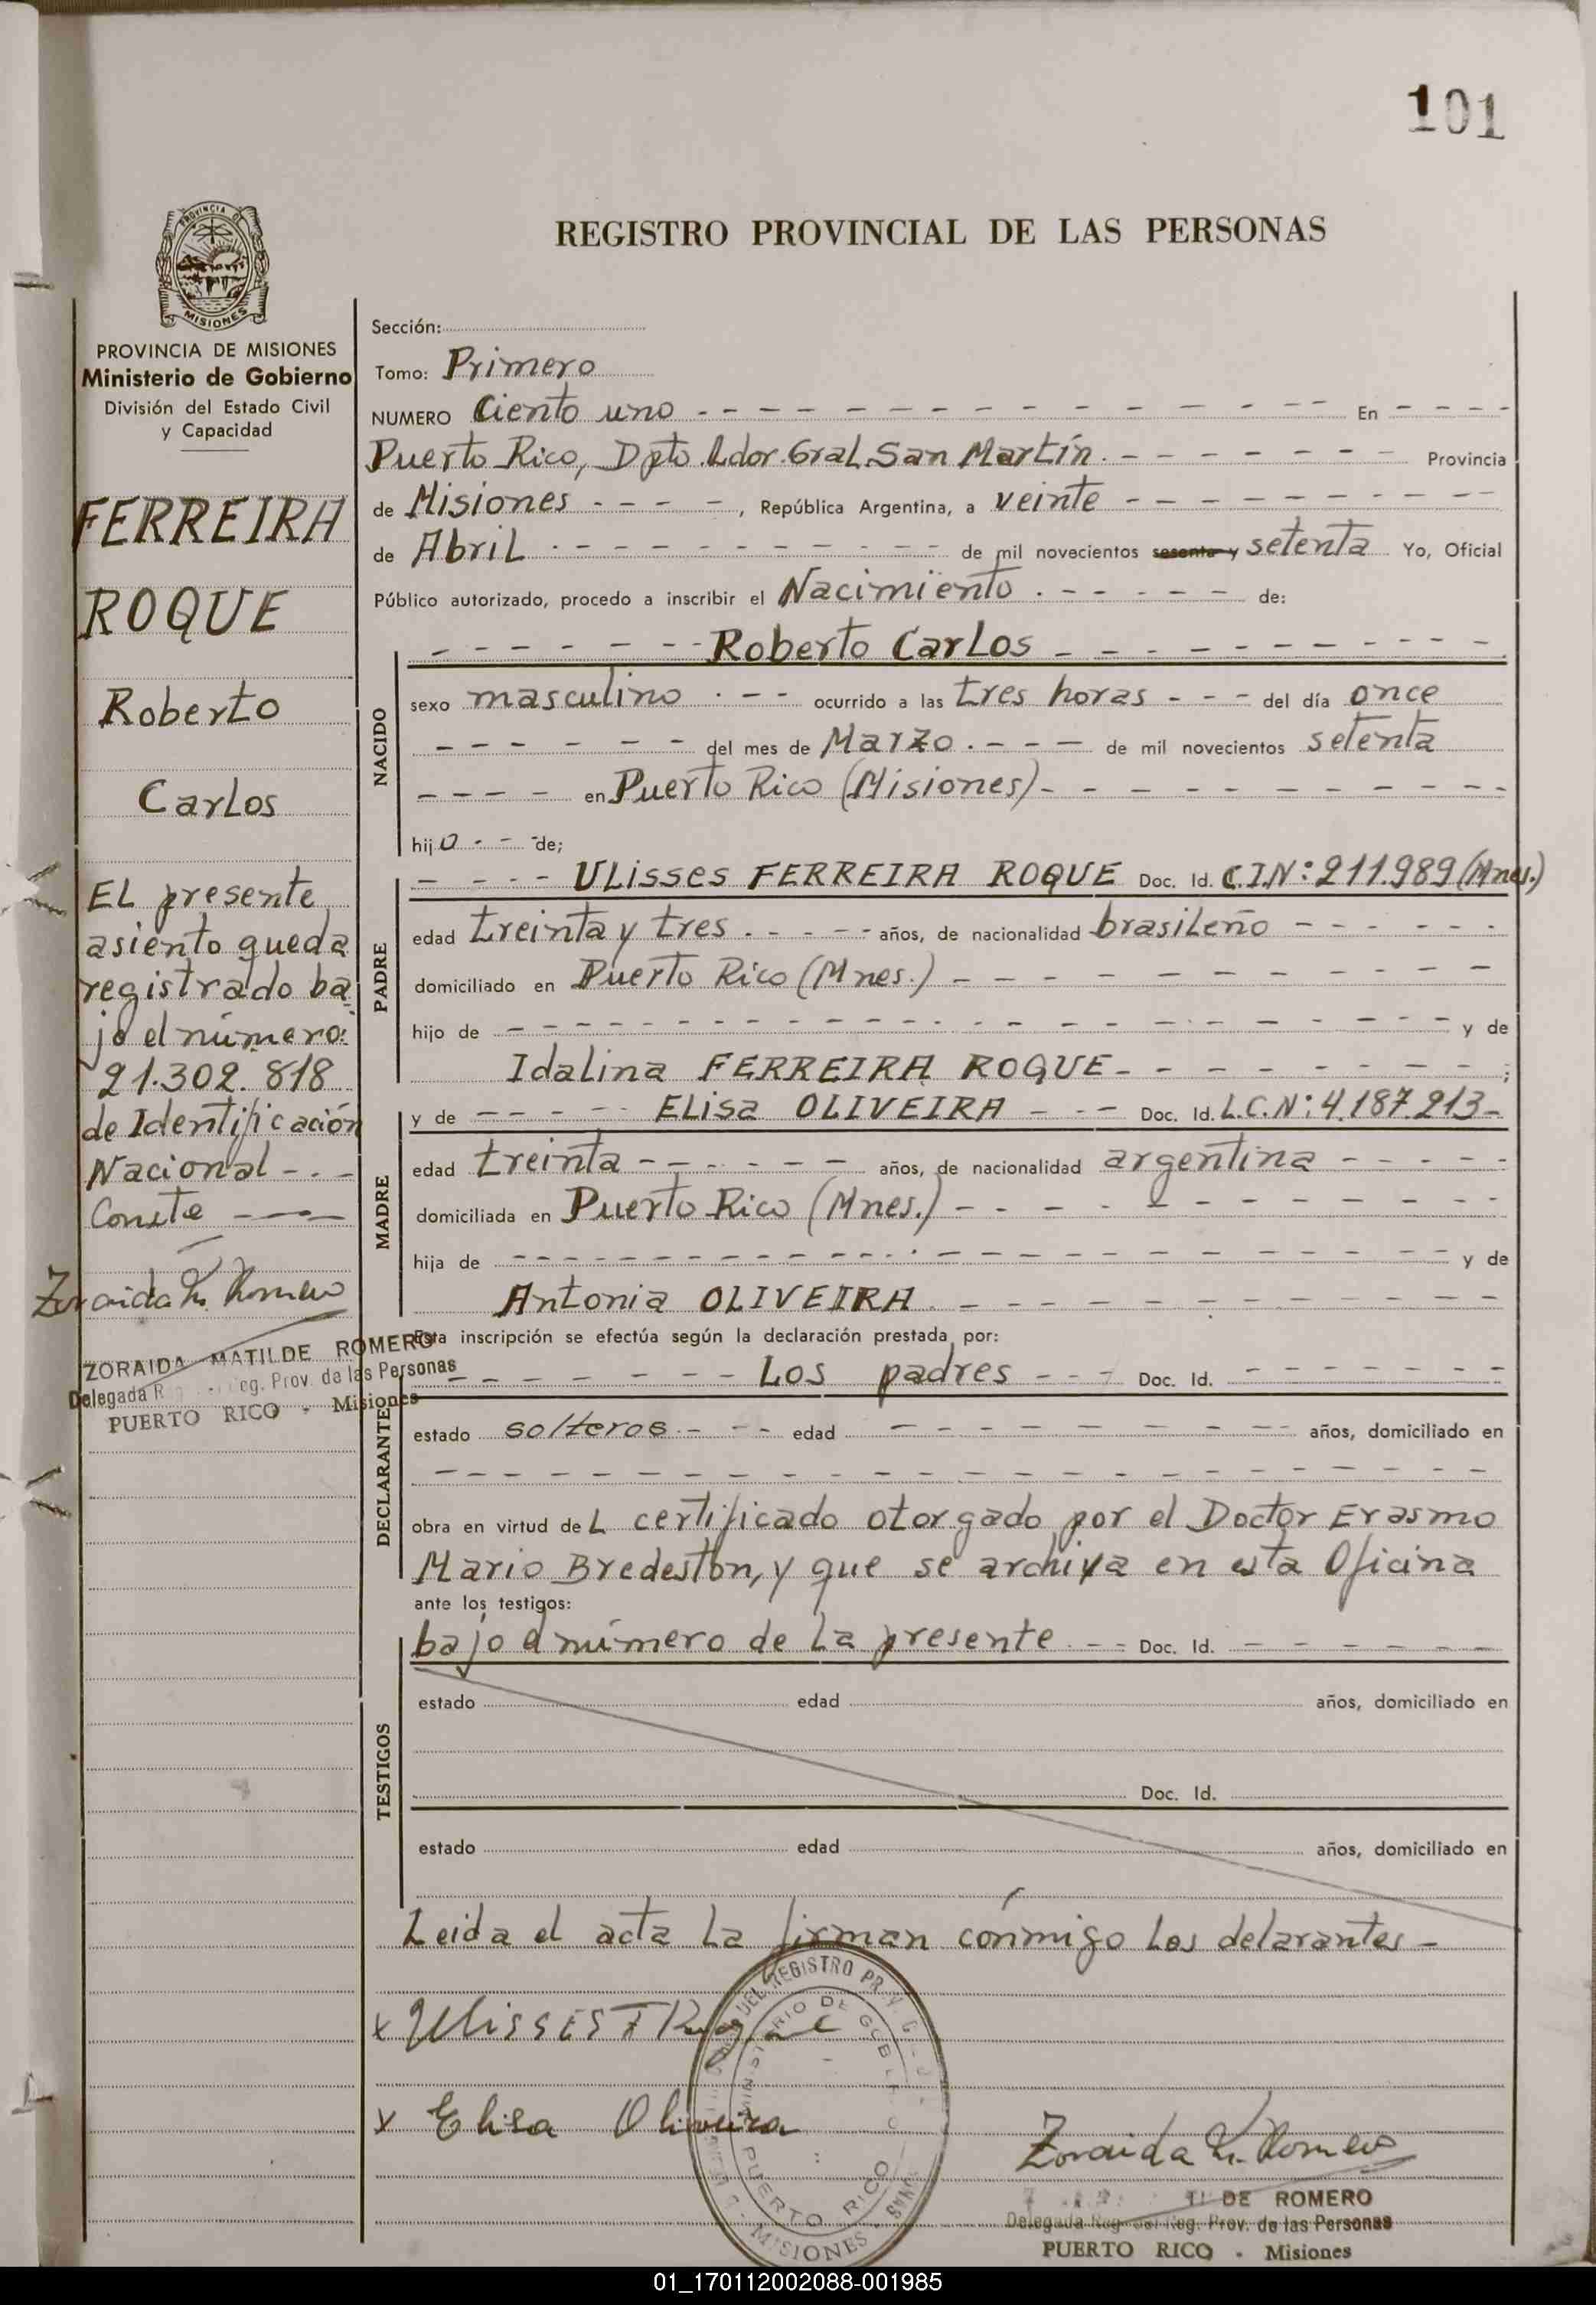 101
PROVINCIA DE
MISIONES
REGISTRO PROVINCIAL DE LAS PERSONAS
PROVINCIA DE MISIONES
Ministerio de Gobierno
División del Estado Civil
y Capacidad
FERREIRA
ROQUE
Roberto
Carlos
EL presente
asiento queda
registrado ba
jo el número:
21.302.818
de Identificación
Nacional - . -
Conste
Zoraida M. Romero
ZORAIDA MATILDE ROMERO
Delegada R eg. Prov. de las Personas
PUERTO RICO - Misiones
Sección:
Tomo: Primero
NUMERO Ciento uno - - - En - - -
Puerto Rico, Dpto. Ldor. Gral. San Martín. - - - Provincia
de Misiones - - - , República Argentina, a veinte - - -
de Abril . - - - de mil novecientos sesenta y setenta Yo, Oficial
Público autorizado, procedo a inscribir el Nacimiento . - - - de:
- - - Roberto Carlos - - -
NACIDO
sexo masculino . - - ocurrido a las tres horas - - - del día once
- - - del mes de Marzo . - - - de mil novecientos setenta
- - - en Puerto Rico (Misiones) - - -
hijo . - - de;
PADRE
- - - ULisses FERREIRA ROQUE Doc. Id. C.I.N°: 211.989 (Mnes.)
edad treinta y tres . - - - años, de nacionalidad brasileño - - -
domiciliado en Puerto Rico (Mnes.) - - -
hijo de - - - y de
Idalina FERREIRA ROQUE - - - ;
MADRE
y de - - - ELisa OLIVEIRA - - - Doc. Id. L.C.N°: 4.187.213-
edad treinta - - - años, de nacionalidad argentina - - -
domiciliada en Puerto Rico (Mnes.) - - -
hija de - - - y de
Antonia OLIVEIRA . - - -
Esta inscripción se efectúa según la declaración prestada por:
DECLARANTE
- - - Los padres - - - Doc. Id. - - -
estado solteros . - - - edad - - - años, domiciliado en
- - -
obra en virtud de L certificado otorgado por el Doctor Erasmo
Mario Bredeston, y que se archiva en esta Oficina
ante los testigos:
TESTIGOS
bajo el número de La presente . - - Doc. Id. - - -
estado edad años, domiciliado en
Doc. Id.
estado edad años, domiciliado en
Leida el acta La firman conmigo Los delarantes -
x Ulisses F Roque
x Elisa Oliveira
DEL REGISTRO PROV.
MINISTERIO DE GOBIERNO
PUERTO RICO
MISIONES
Zoraida M. Romero
DE ROMERO
Delegada Reg. del Reg. Prov. de las Personas
PUERTO RICO - Misiones
01_170112002088-001985